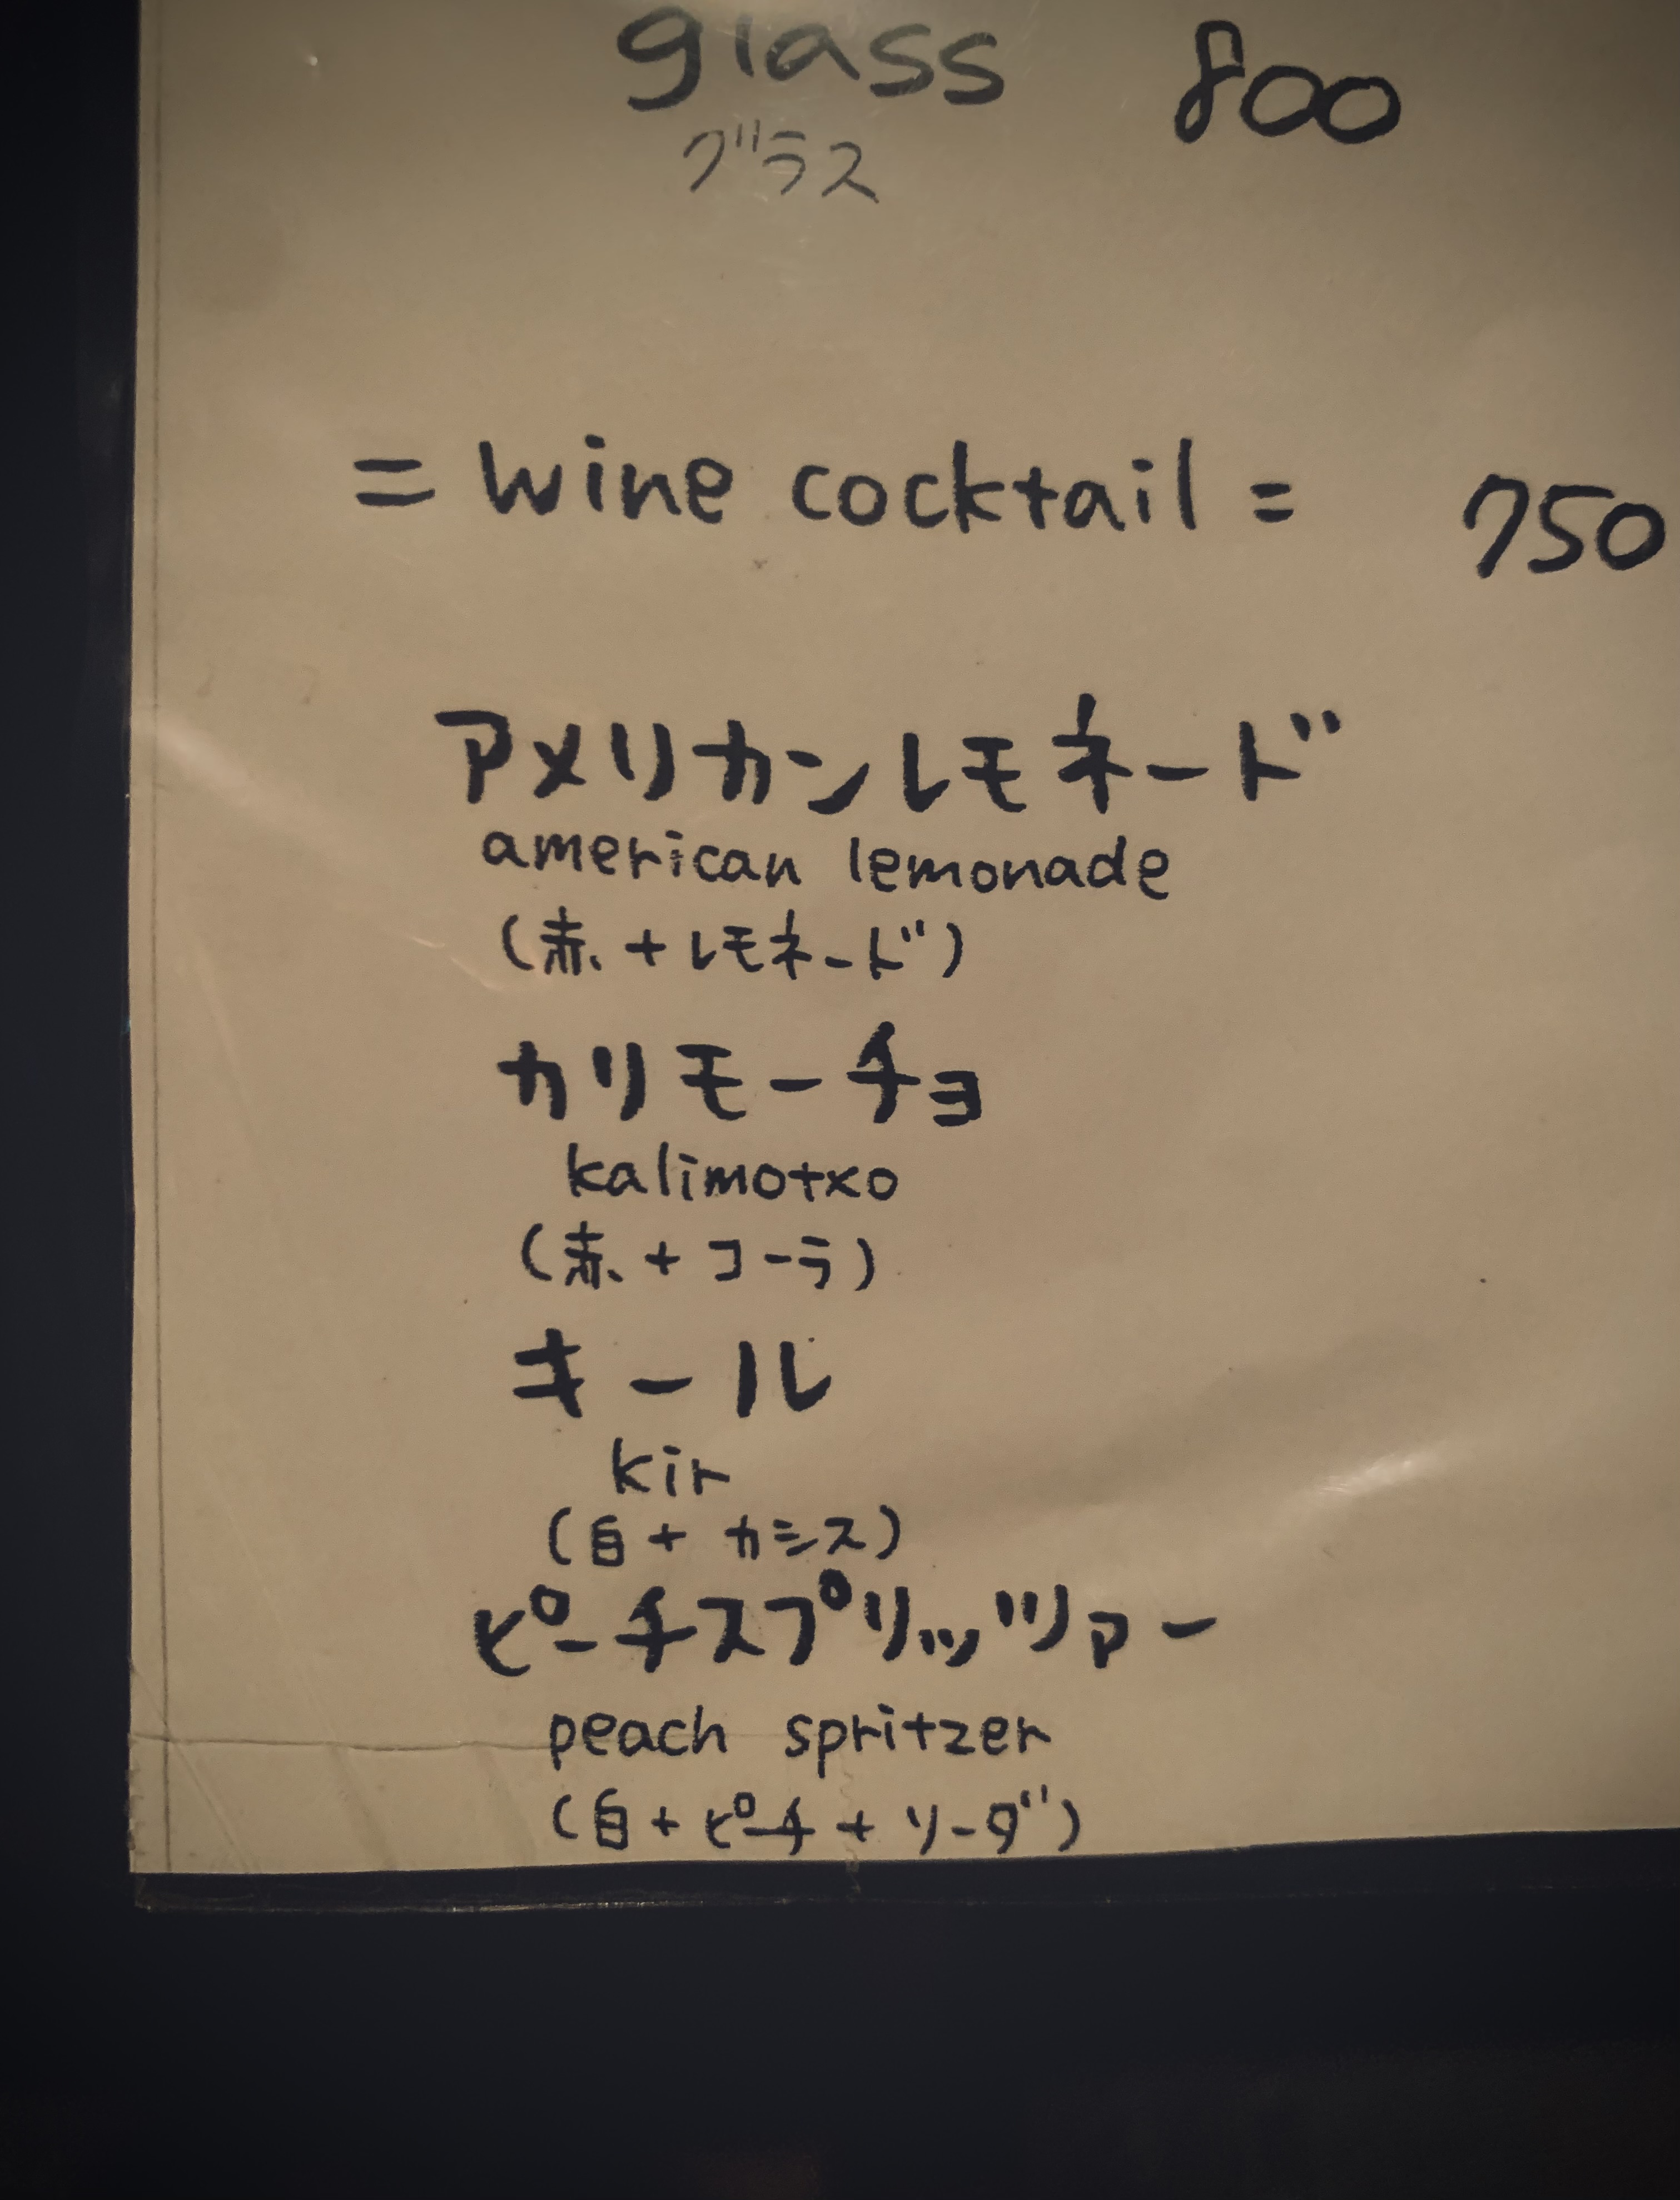 glass 800
グラス
= wine cocktail = 750
アメリカンレモネード
american lemonade
(赤 + レモネード)
カリモーチョ
kalimotxo
(赤 + コーラ)
キール
kir
(白 + カシス)
ピーチスプリッツァー
peach spritzer
(白 + ピーチ + ソーダ)